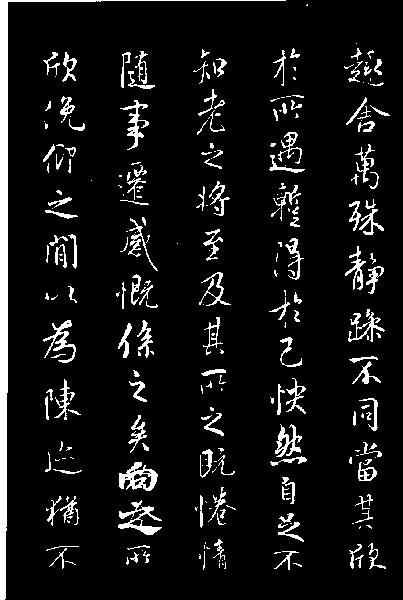 趣舍萬殊靜躁不同當其欣
於所遇蹔得於己怏然自足不
知老之將至及其所之既惓情
隨事遷感慨係之矣向之所
欣俛仰之閒以為陳迹猶不